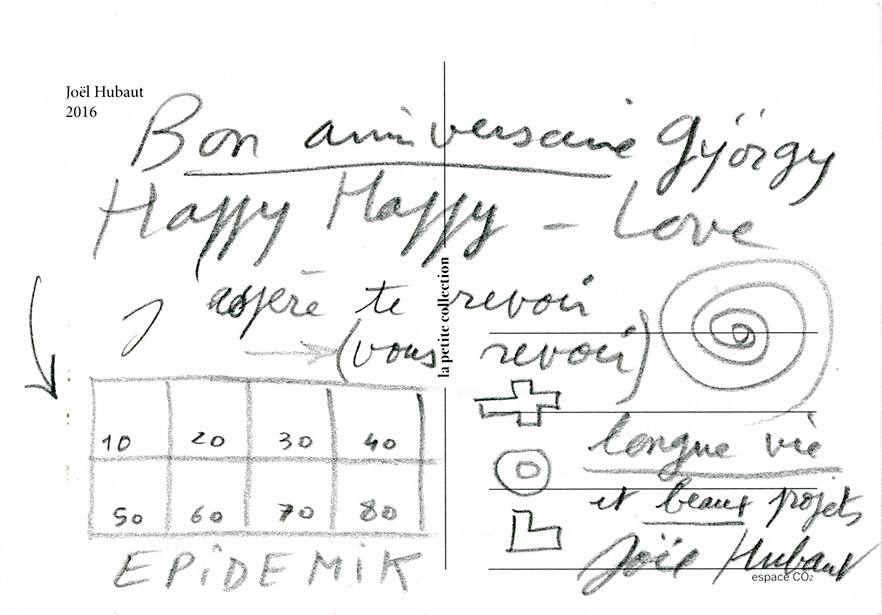 Joël Hubaut
2016
Bon anniversaire György
Happy Happy – Love
J'espère te revoir
(vous revoir)
la petite collection
10 20 30 40
50 60 70 80
EPiDEMiK
longue vie
et beaux projets
Joël Hubaut
espace CO₂